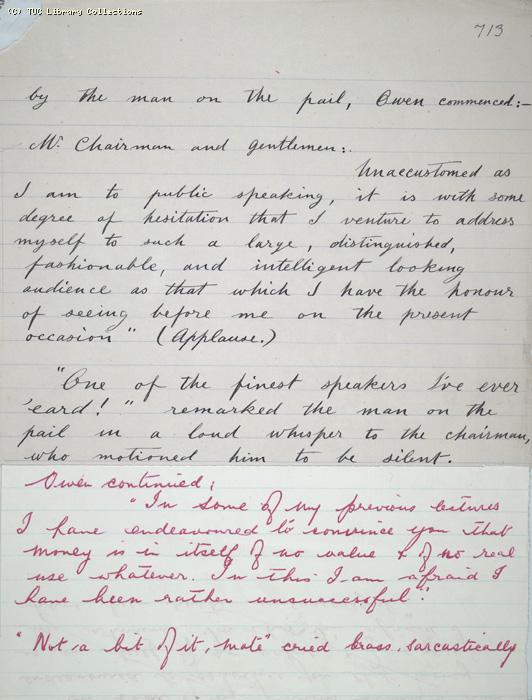 (C) TUC Library Collections
713
by the man on the pail, Owen commenced:-
Mr Chairman and gentlemen:.
Unaccustomed as
I am to public speaking, it is with some
degree of hesitation that I venture to address
myself to such a large, distinguished,
fashionable, and intelligent looking
audience as that which I have the honour
of seeing before me on the present
occasion" (Applause.)
"One of the finest speakers I've ever
'eard!" remarked the man on the
pail in a loud whisper to the chairman,
who motioned him to be silent.
Owen continued:
"In some of my previous lectures
I have endeavoured to convince you that
money is in itself of no value & of no real
use whatever. In this I am afraid I
have been rather unsuccessful".
"Not a bit of it, mate" cried Crass, sarcastically